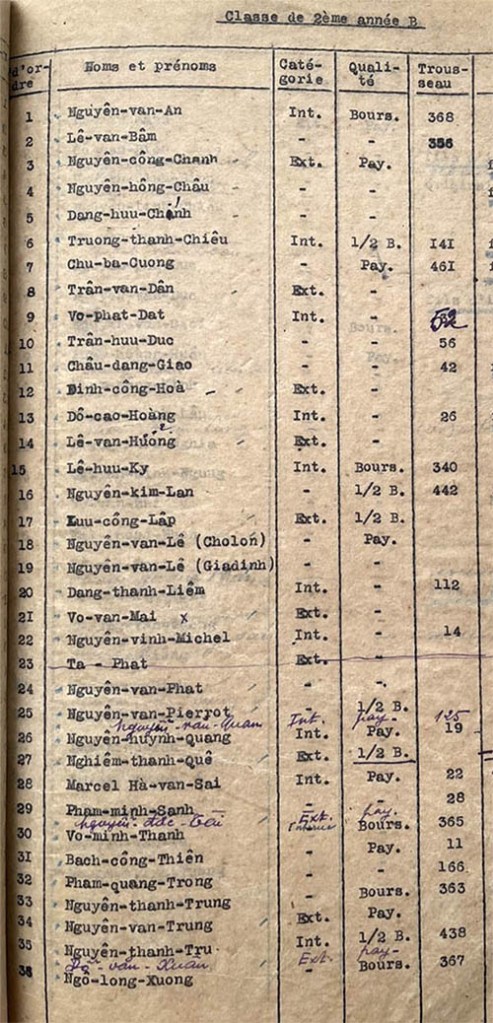 Classe de 2ème année B
d'or-dre Noms et prénoms Caté-gorie Quali-té Trous-seau
1 Nguyên-van-An Int. Bours. 368
2 Lê-van-Bâm - - 356
3 Nguyên-công-Chanh Ext. Pay.
4 Nguyên-hông-Châu - -
5 Dang-huu-Chánh - -
6 Truong-thanh-Chiêu Int. 1/2 B. 141
7 Chu-ba-Cuong - Pay. 461
8 Trân-van-Dân Ext. -
9 Vo-phat-Dat Int. - 52
10 Trân-huu-Duc - - 56
11 Châu-dang-Giao - - 42
12 Dinh-công-Hoà Ext. -
13 Dô-cao-Hoàng Int. - 26
14 Lê-van-Hướng Ext. -
15 Lê-huu-Ky Int. Bours. 340
16 Nguyên-kim-Lan - 1/2 B. 442
17 Luu-công-Lâp Ext. 1/2 B.
18 Nguyên-van-Lê (Cholón) - Pay.
19 Nguyên-van-Lê (Giadinh) - -
20 Dang-thanh-Liêm Int. - 112
21 Vo-van-Mai x Ext. -
22 Nguyên-vinh-Michel Int. - 14
23 Ta - Phat Ext. -
24 Nguyên-van-Phat - -
25 Nguyên-van-Pierrot - 1/2 B.
Nguyễn-văn-Quan Int. pay- 125
26 Nguyên-huynh-Quang Int. Pay. 19
27 Nghiêm-thanh-Quê Ext. 1/2 B.
28 Marcel Hà-van-Sai Int. Pay. 22
29 Pham-minh-Sanh - - 28
Nguyễn-đắc- Ext. pay.
30 Vo-minh-Thanh Interne Bours. 365
31 Bach-công-Thiên - Pay. 11
32 Pham-quang-Trong - - 166
33 Nguyên-thanh-Trung - Bours. 363
34 Nguyên-van-Trung Ext. Pay.
35 Nguyên-thanh-Tru Int. 1/2 B. 438
Đỗ-văn-Xuân Ext. pay-
36 Ngô-long-Xuong - Bours. 367